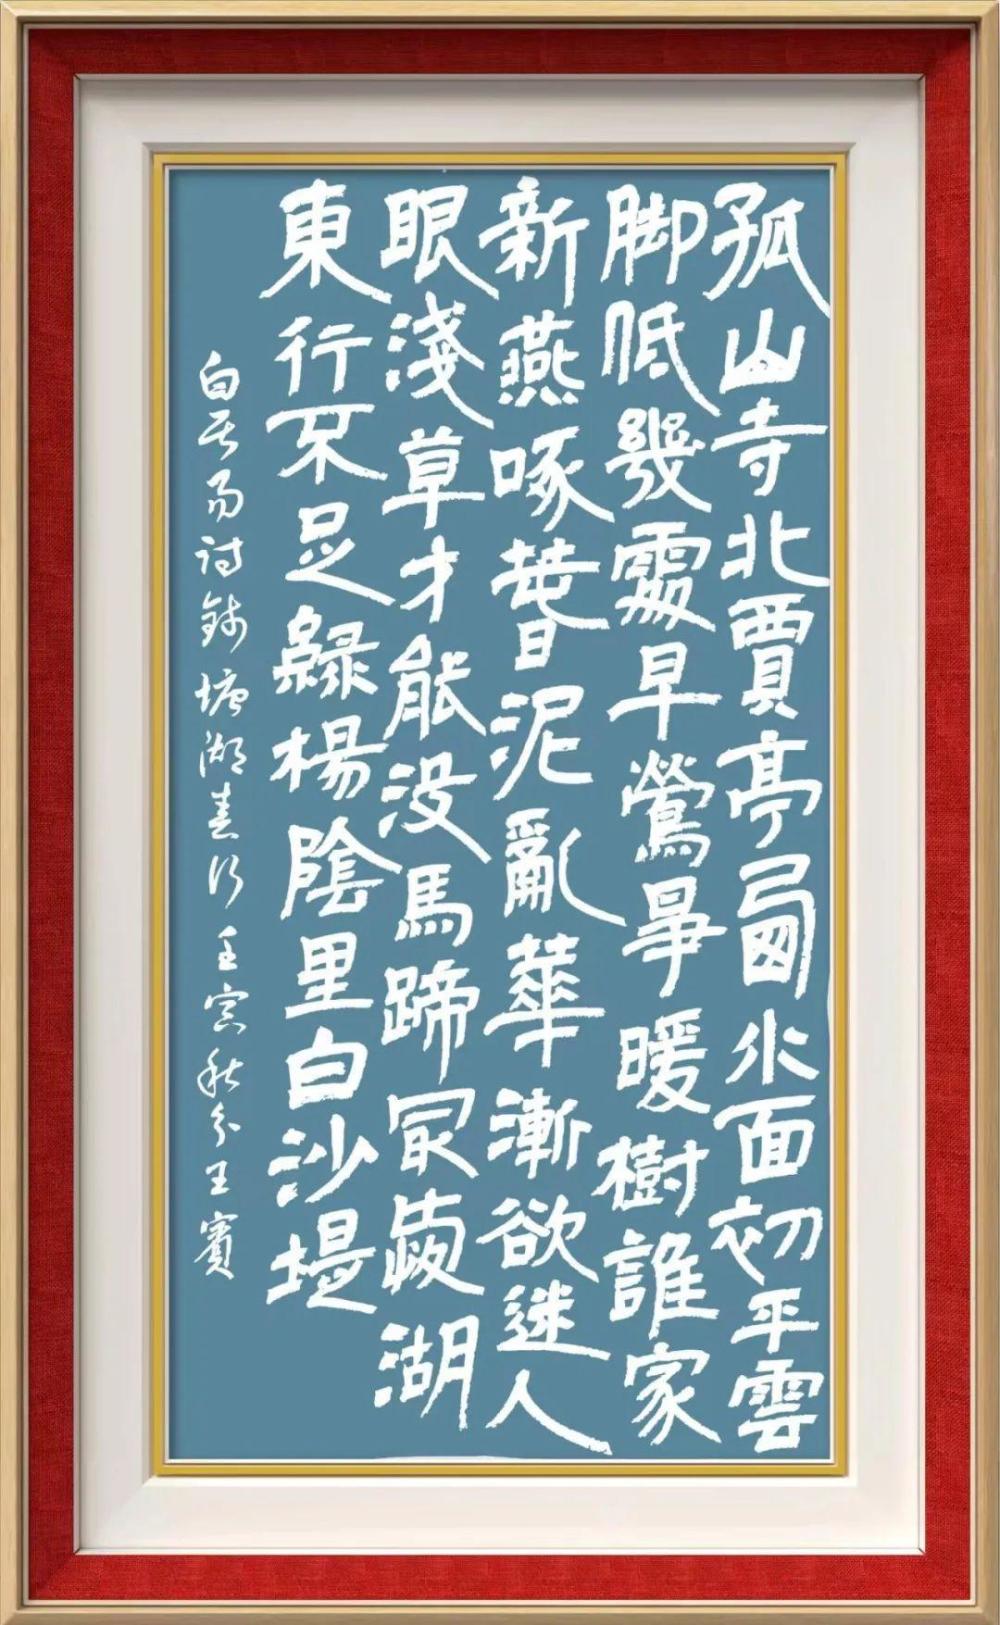 孤山寺北賈亭西水面初平雲
脚低幾處早鶯爭暖樹誰家
新燕啄春泥亂華漸欲迷人
眼淺草才能没馬蹄冣愛湖
東行不足綠楊陰里白沙堤
白居易詩錢塘湖春行 壬寅秋分王賓